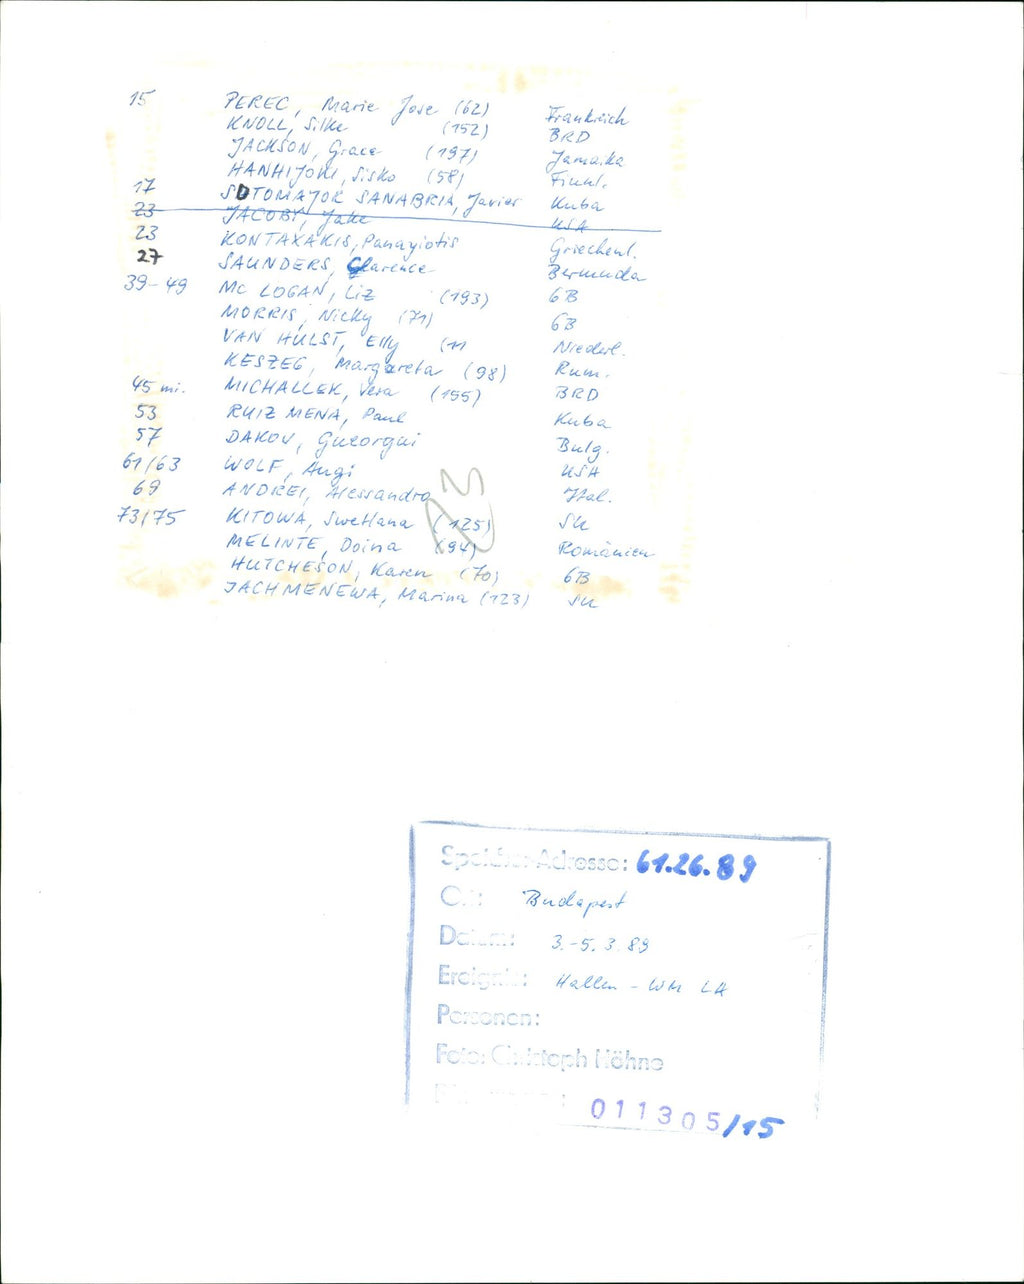 15 PEREC, Marie Jose (62) Frankreich
KNOLL, Silke (152) BRD
JACKSON, Grace (197) Jamaika
HANHIJOKI, Sisko (58) Finnl.
17 SOTOMAJOR SANABRIA, Javier Kuba
23 JACOBY, Jake USA
23 KONTAXAKIS, Panayiotis Griechenl.
27 SAUNDERS, Clarence Bermuda
39-49 Mc LOGAN, Liz (193) GB
MORRIS, Nicky (71) GB
VAN HULST, Elly (11 Niederl.
KESZEG, Margareta (98) Rum.
45 mi. MICHALLEK, Vera (155) BRD
53 RUIZ MENA, Paul Kuba
57 DAKOV, Gueorgui Bulg.
61/63 WOLF, Angi USA
69 ANDREI, Alessandro Ital.
73/75 KITOWA, Swetlana (125) SU
MELINTE, Doina (94) Romänien
HUTCHESON, Karen (70) GB
JACHMENEWA, Marina (123) SU
Speicher-Adresse: 61.26.89
Ort: Budapest
Datum: 3.-5.3.89
Ereignis: Hallen-WM LA
Personen:
Foto: Christoph Höhne
011305/15